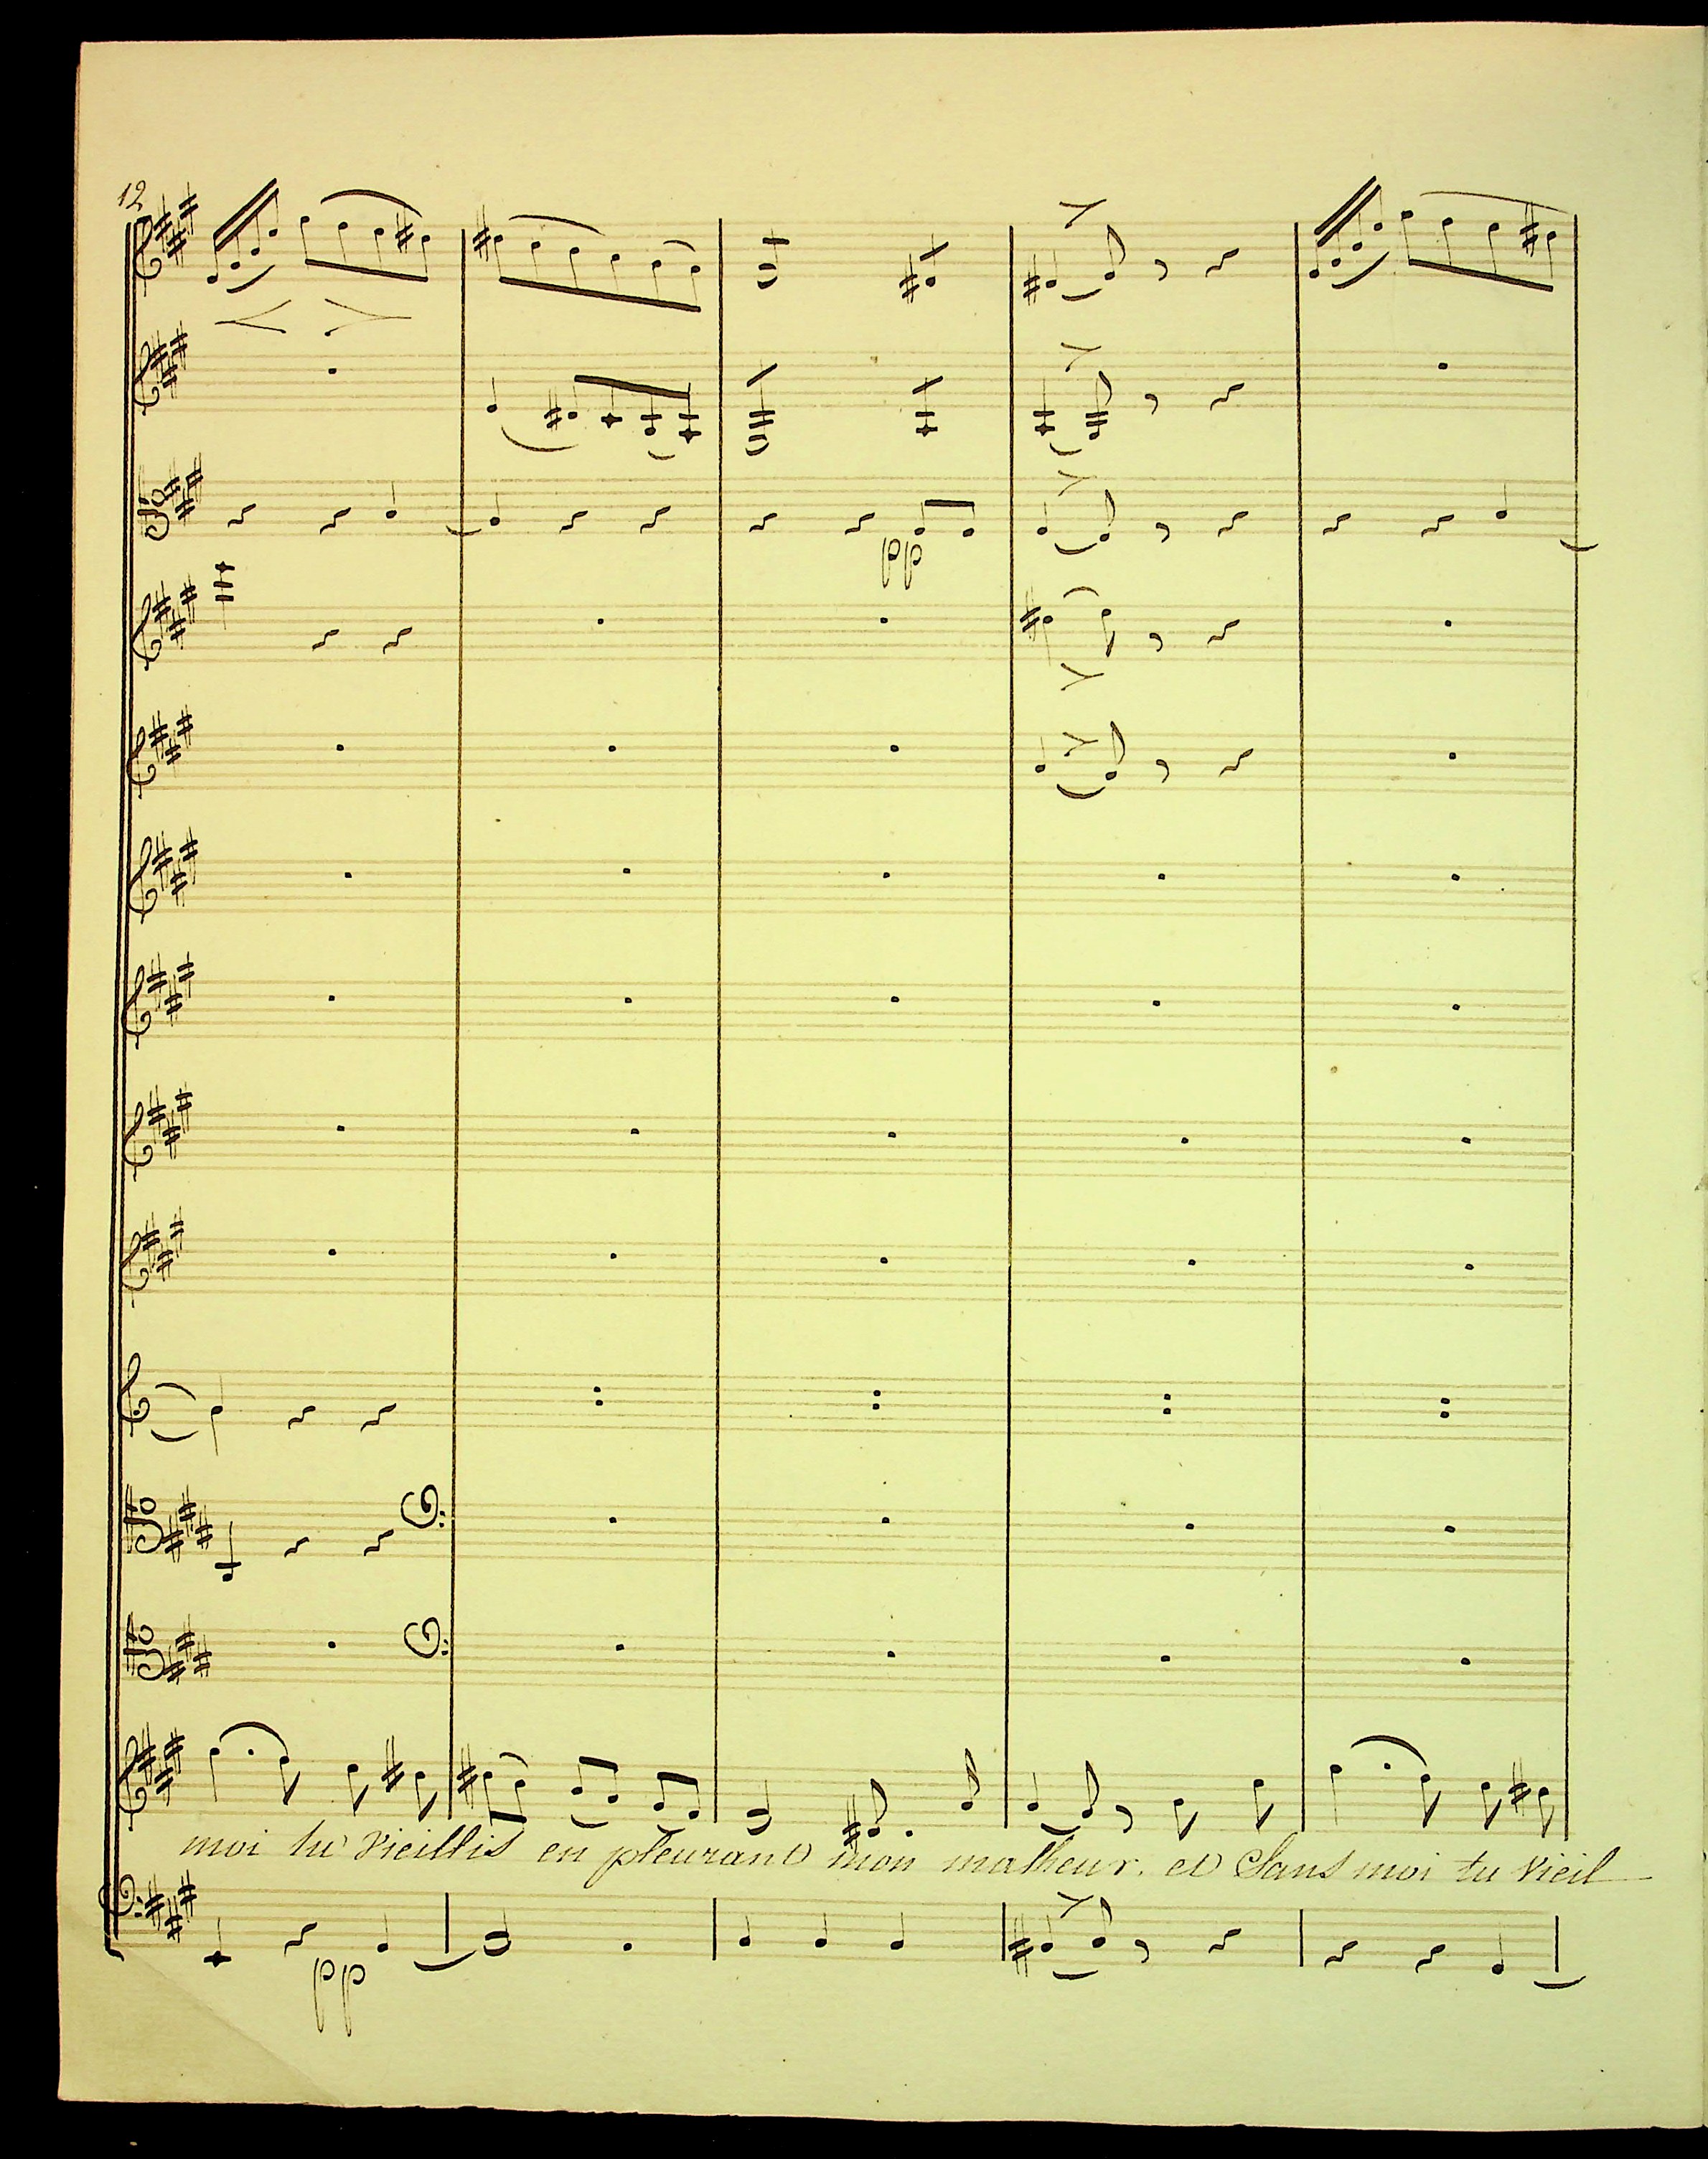 12
pp
moi tu vieillis en pleurant mon malheur. et Sans moi tu vieil
pp